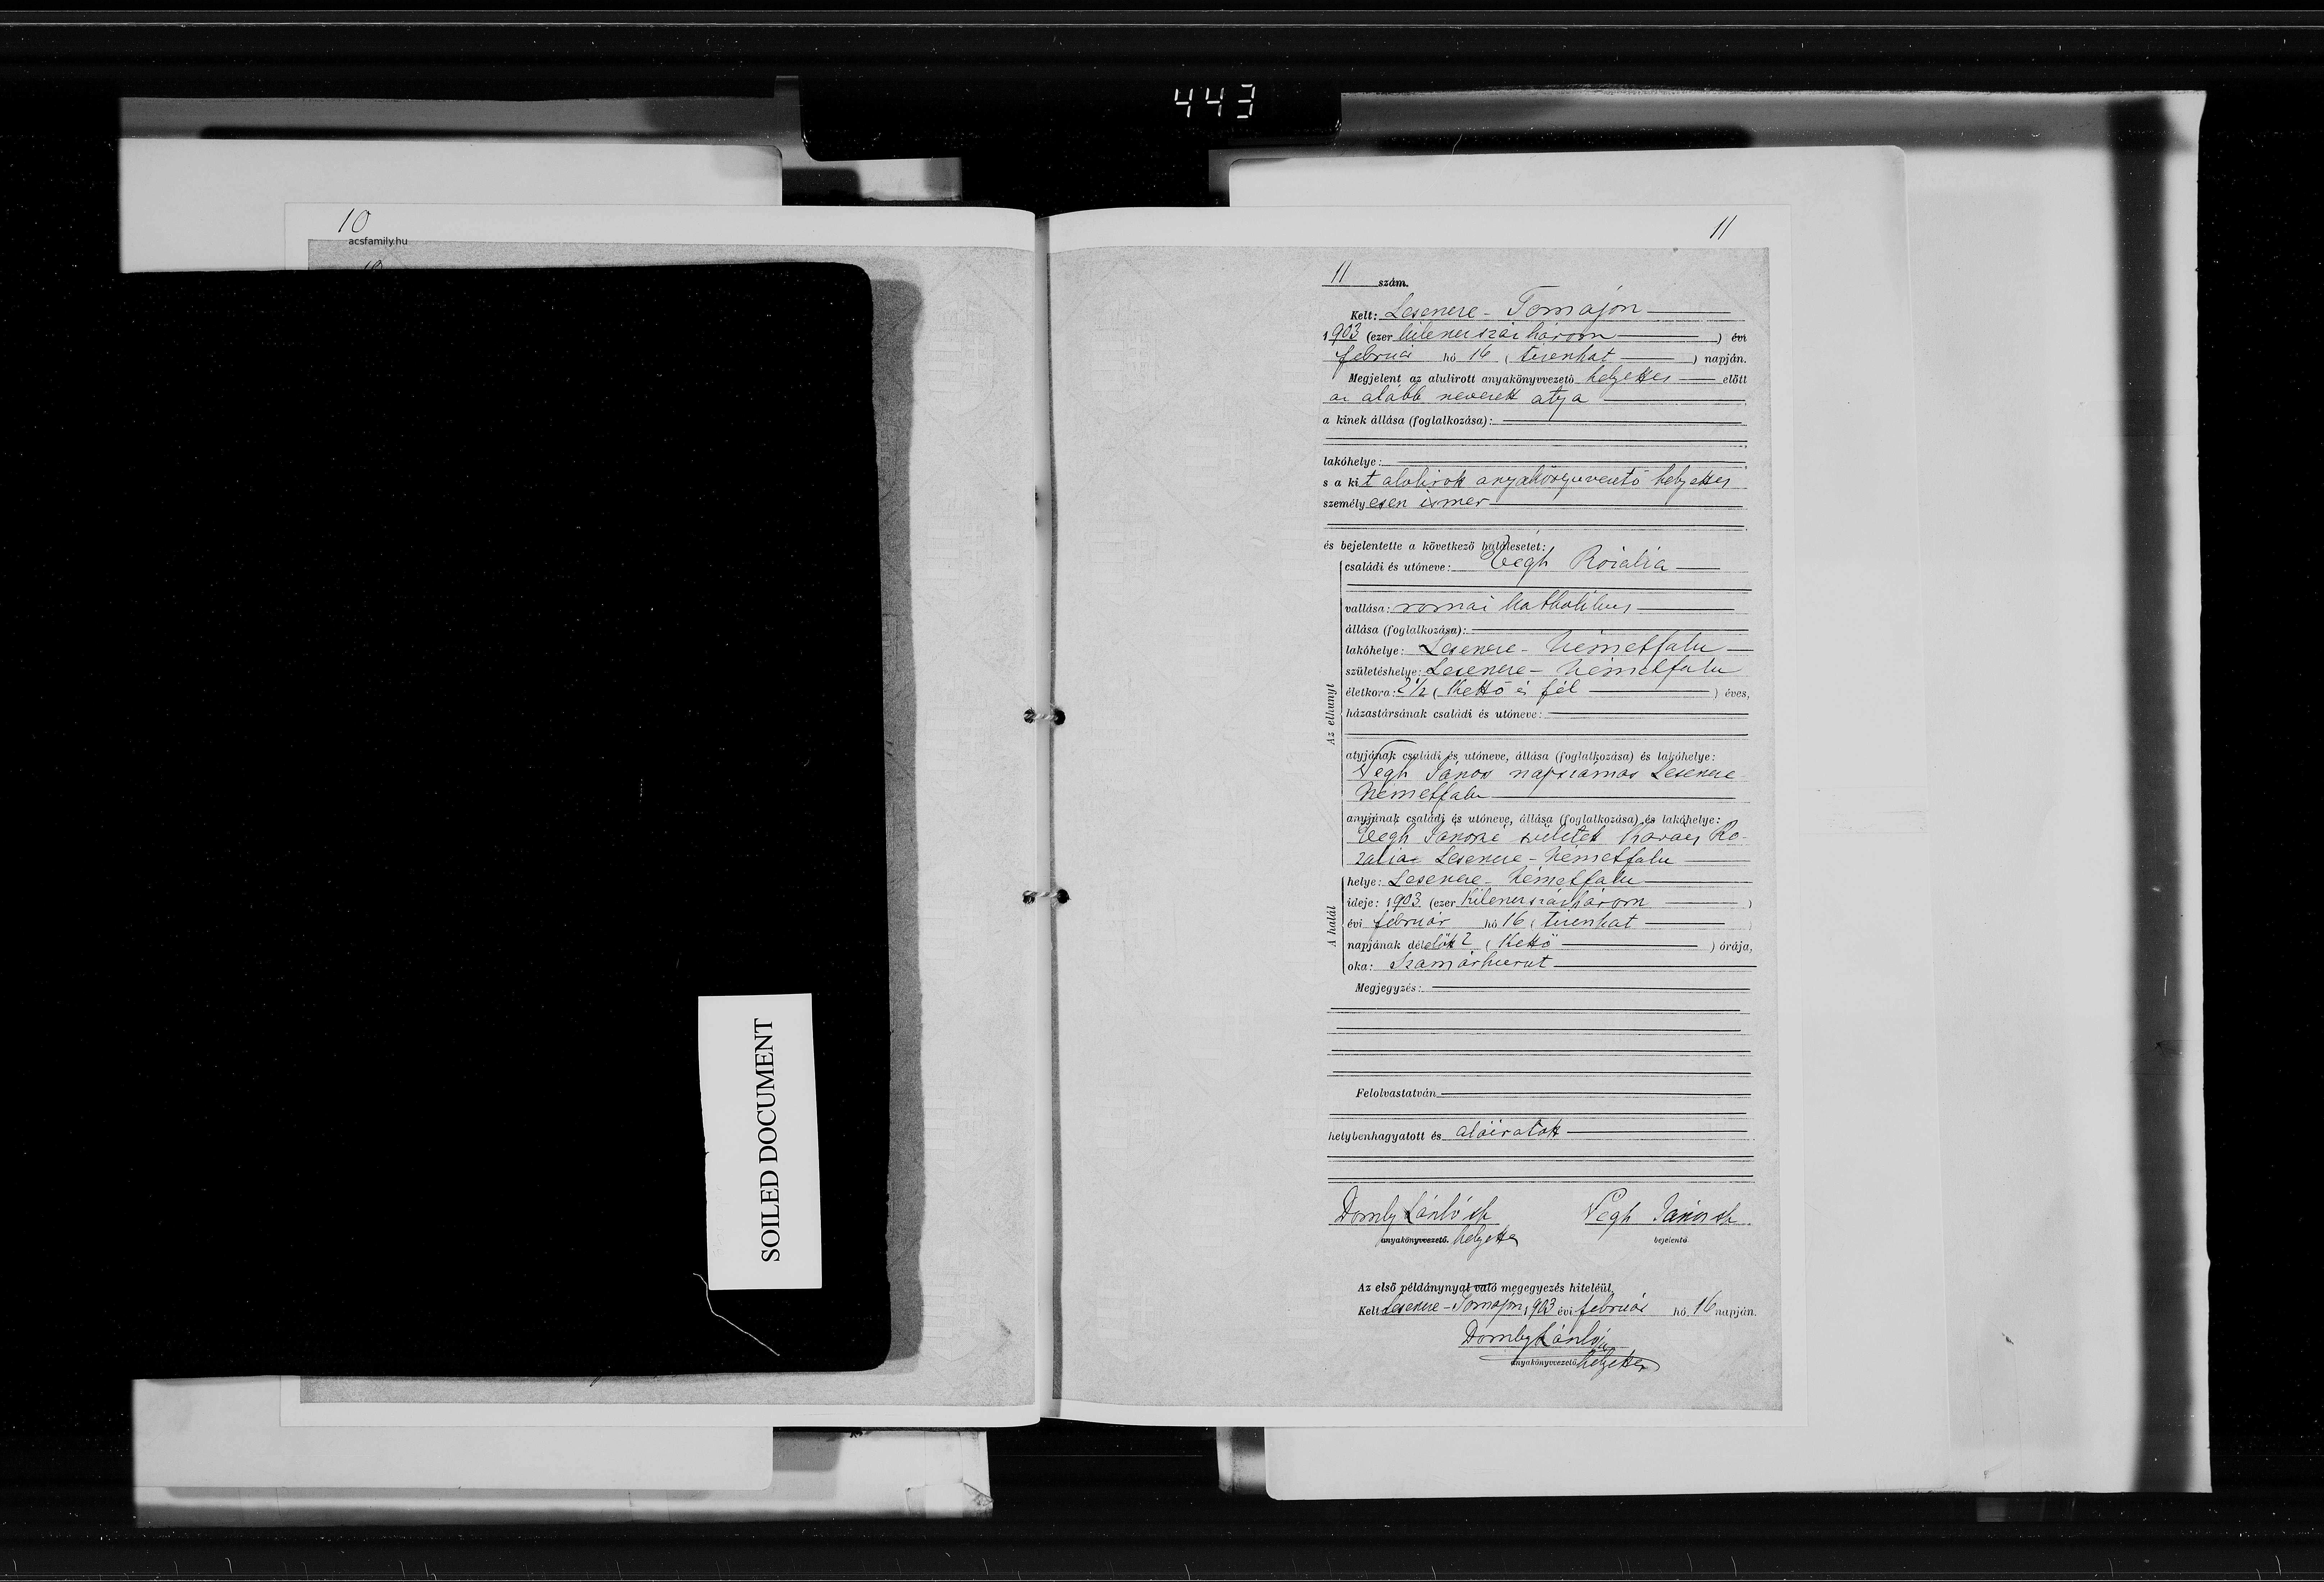 443
10
acsfamily.hu
10
SOILED DOCUMENT
11
11 szám.
Kelt: Lesencze-Tomajon
1903 (ezer kilenczszázhárom) évi
február hó 16 (tizenhat) napján.
Megjelent az alulirott anyakönyvvezető helyettes előtt
az alább nevezett atyja
a kinek állása (foglalkozása):
lakóhelye:
s a kit alolirott anyakönyvvezető helyettes
személyesen ismer
és bejelentette a következő halálesetet:
Az elhunyt
családi és utóneve: Végh Rozália
vallása: romai katholikus
állása (foglalkozása):
lakóhelye: Lesencze-Németfalu
születéshelye: Lesencze-Németfalu
életkora: 2 1/2 (Kettő és fél) éves,
házastársának családi és utóneve:
atyjának családi és utóneve, állása (foglalkozása) és lakóhelye:
Végh János napszamos Lesencze
Németfalu
anyjának családi és utóneve, állása (foglalkozása) és lakóhelye:
Végh Jánosné született Ro-
zalia Lesencze-Németfalu
A halál
helye: Lesencze-Németfalu
ideje: 1903 (ezer kilenczszázhárom)
évi február hó 16 (tizenhat)
napjának délelőtt 2 (Kettő) órája,
oka: Szamárhurut
Megjegyzés:
Felolvastatván
helybenhagyatott és aláiratott
Lánló sk Végh János sk.
anyakönyvvezető. helyettes bejelentő
Az első példánynyal való megegyezés hiteléül.
Kelt Lesencze-Tomajon 1903 évi február hó 16 napján.
anyakönyvvezető helyettes